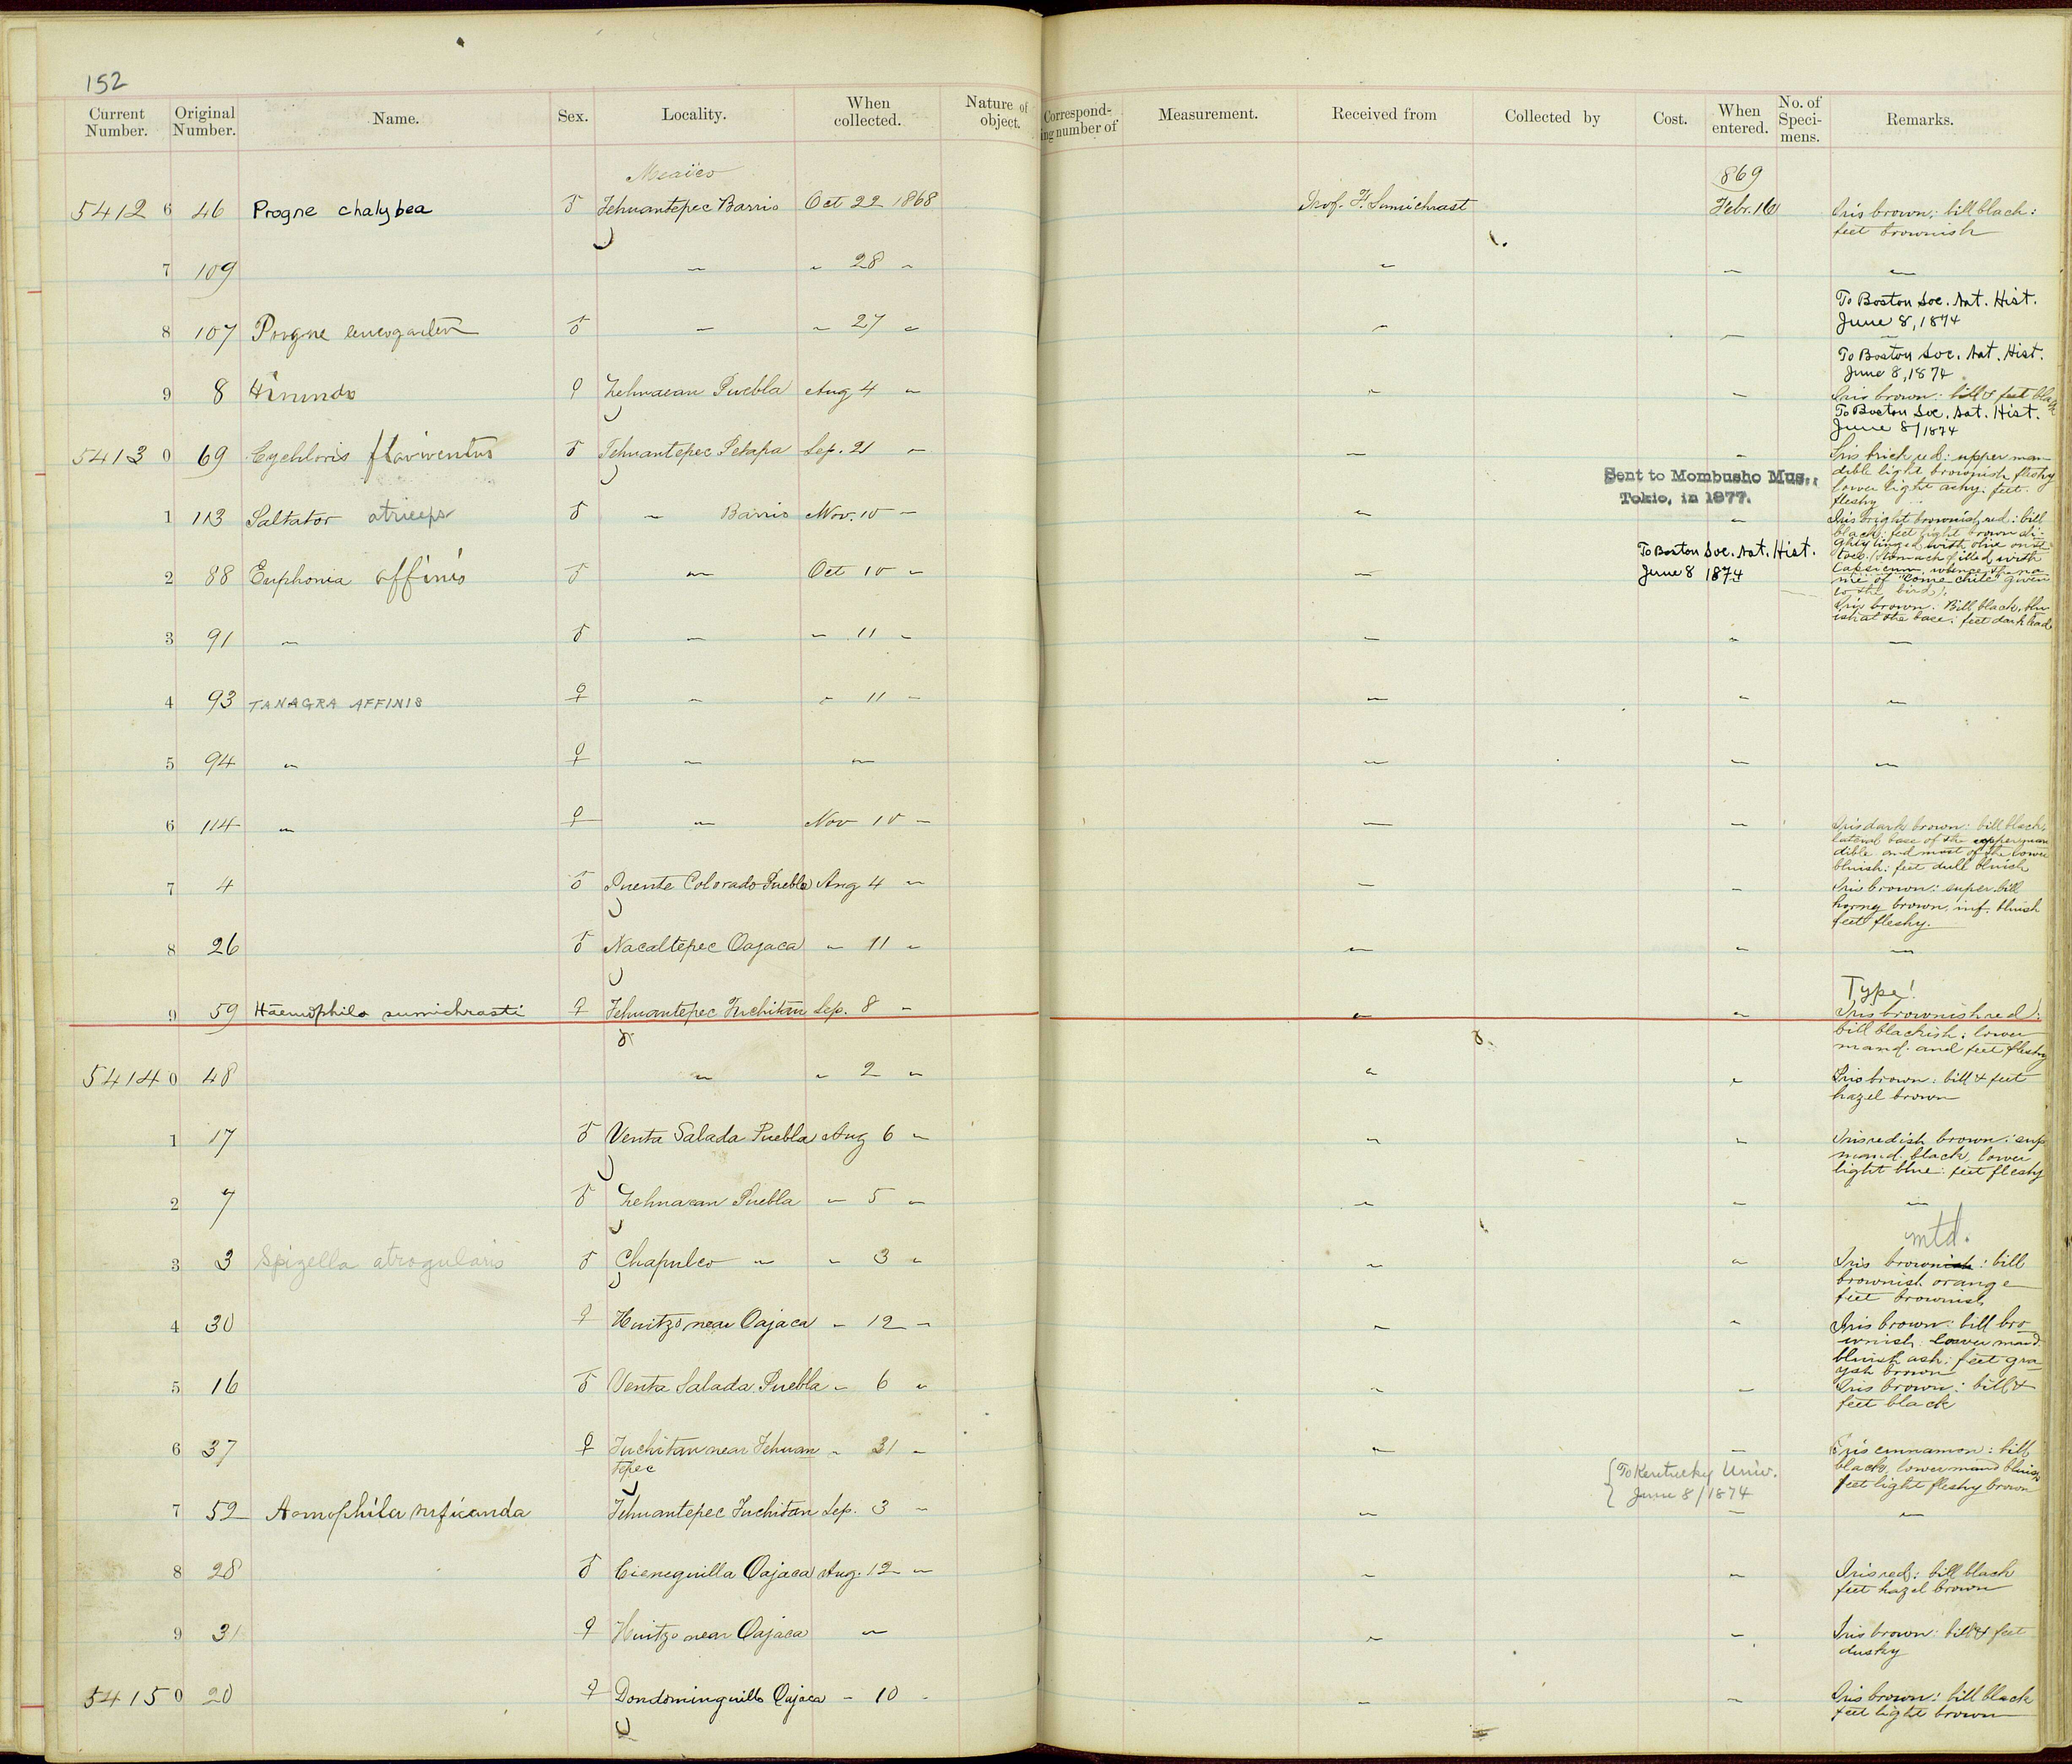 152
Current Number. Original Number. Name. Sex. Locality. When collected. Nature of object. Correspond- ing number of Measurement. Received from Collected by Cost. When entered. No. of Speci- mens. Remarks.
Mexico 869
54126 46 Progne chalybea ♂ Tehuantepec Barrio Oct 22 1868 Prof. F. Sumichrast Febr. 16 Iris brown: bill black:
feet brownish
7 109 " " 28 " " " "
To Boston Soc. Nat. Hist.
June 8, 1874
8 107 Progne ♂ " " 27 " " " "
To Boston Soc. Nat. Hist.
June 8, 1874
9 8 Hirundo ♀ Tehuacan Puebla Aug 4 " " " Iris brown: bill & feet black
To Boston Soc. Nat. Hist.
June 8/1874
54130 69 Cychloris flaviventris ♂ Tehuantepec Petapa Sep. 21 " " " Iris brick red: upper man-
dible light brownish fleshy
lower light ashy: feet
fleshy
Sent to Mombusho Mus.,
Tokio, in 1877.
1 113 Saltator atriceps ♂ " Barrio Nov. 10 " " " Iris bright brownish red: bill
black: feet light brown sli-
ghtly tinged with olive on the
toes. (Stomach filled with
Capsicum, whence the na-
me of "come chile" given
to the bird).
To Boston Soc. Nat. Hist.
June 8 1874
2 88 Euphonia affinis ♂ " Oct 10 " " Iris brown: Bill black, blu-
ish at the base: feet dark lead
3 91 " ♂ " " 11 " " " "
4 93 TANAGRA AFFINIS ♀ " " 11 " " " "
5 94 " ♀ " " " " "
6 114 " ♀ " Nov 10 " " " Iris dark brown: bill black,
lateral base of the upper man
dible and most of the lower
bluish: feet dull bluish
7 4 ♂ Puente Colorado Puebla Aug 4 " " " Iris brown: super. bill
horny brown, inf. bluish
feet fleshy.
8 26 ♂ Nacaltepec Oajaca " 11 " " " "
Type!
9 59 Haemophila sumichrasti ♀ Tehuantepec Juchitan Sep. 8 " " " Iris brownish red:
bill blackish: lower
mand. and feet fleshy
54140 48 " " 2 " " " Iris brown: bill & feet
hazel brown
1 17 ♂ Venta Salada Puebla Aug 6 " " " Iris redish brown: sup
mand. black, lower
light blue: feet fleshy
2 7 ♂ Tehuacan Puebla " 5 " " " "
mtd.
3 3 Spizella atrogularis ♂ Chapulco " " 3 " " " Iris brownish: bill
brownish orange
feet brownish
4 30 ♀ Huitzo near Oajaca " 12 " " " Iris brown: bill bro
wnish: lower mand.
bluish ash: feet gra
yish brown
5 16 ♂ Venta Salada Puebla " 6 " " " Iris brown: bill &
feet black
6 37 ♀ Juchitan near Tehuan " 31 " " " Iris cinnamon: bill
tepec
black, lower mand bluish
feet light fleshy brown
To Kentucky Univ.
June 8/1874
7 52 Aemophila ruficauda Tehuantepec Juchitan Sep. 3 " " " "
8 28 ♂ Cieneguilla Oajaca Aug. 12 " " " Iris red: bill black
feet hazel brown
9 31 ♀ Huitzo near Oajaca " " " Iris brown: bill & feet
dusky
54150 20 ♀ Dondominguillo Oajaca " 10 " " " Iris brown: bill black
feet light brown